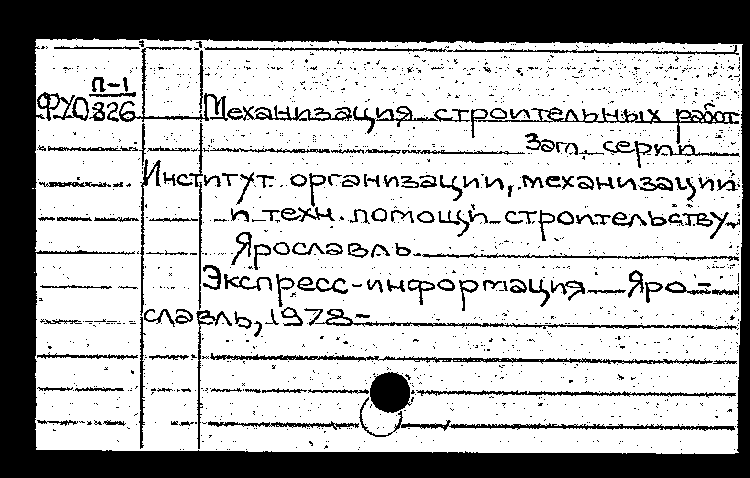 П-1
ФУ0826 Механизация строительных работ
Заг. серии
Институт организации, механизации
и техн. помощи строительству.
Ярославль
Экспресс-информация Яро-
славль, 1978-